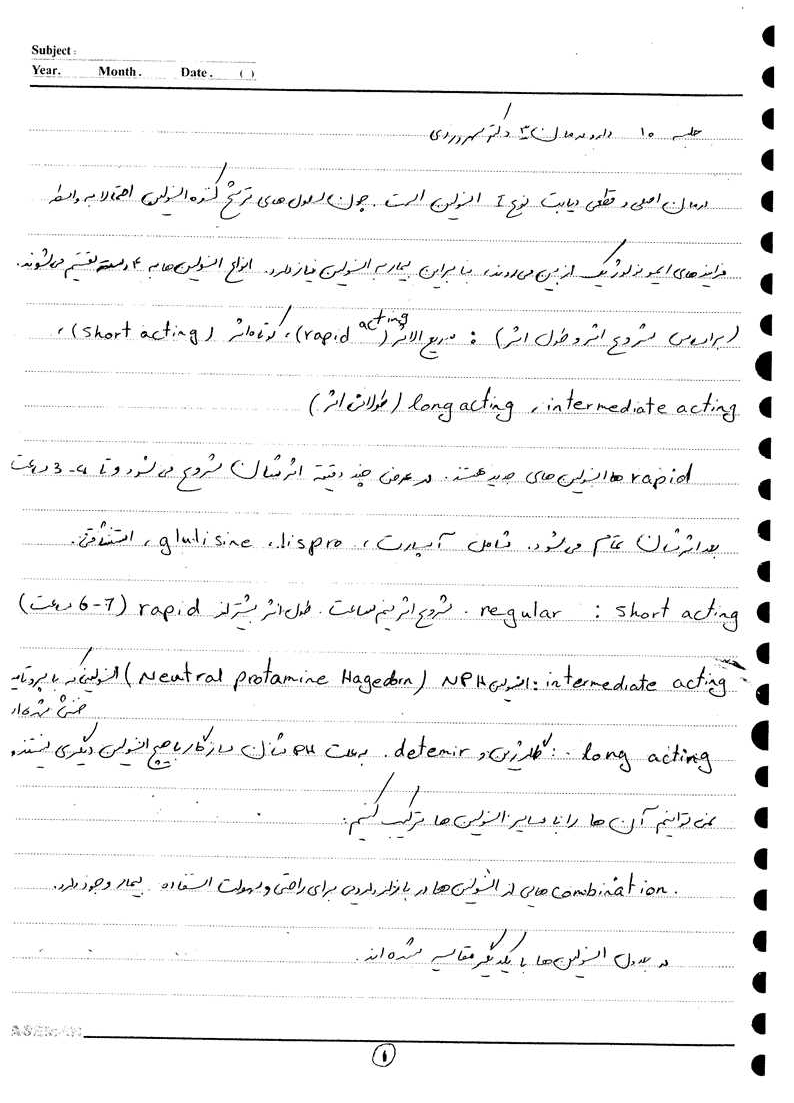 Subject:
Year. Month. Date. ( )
جلسه ۱۰ دارودرمان ۳ دکتر سهروردی
درمان اصلی و قطعی دیابت نوع I انسولین است. چون سلول های ترشح کننده انسولین احتمالا به واسطه
فرایندهای ایمونولوژیک از بین می‌روند، بنابراین بیمار به انسولین نیاز دارد. انواع انسولین ها به ۴ دسته تقسیم می‌شوند.
(براساس شروع اثر و طول اثر) : سریع الاثر (rapid acting)، کوتاه اثر (short acting)،
intermediate acting ، long acting (طولانی اثر)
rapid ها انسولین های جدید هستند. در عرض چند دقیقه اثرشان شروع می شود و تا 3-4 ساعت
بعد اثرشان تمام می‌شود. شامل آسپارت، lispro، glulisine، استنشاقی.
short acting : regular . شروع اثر نیم ساعت. طول اثر بیشتر از rapid (6-7 ساعت)
intermediate acting : انسولین NPH (Neutral Protamine Hagedorn) انسولینی که با پروتامین
خنثی شده
long acting : گلارژین و detemir. به علت PH شان سازگار با هیچ انسولین دیگری نیستند و
نمی توانیم آن ها را با سایر انسولین ها ترکیب کنیم.
combination هایی از انسولین ها در بازار دارویی برای راحتی و سهولت استفاده بیمار وجود دارد.
در جدول انسولین ها با یکدیگر مقایسه شده اند.
ASEMAN
۱